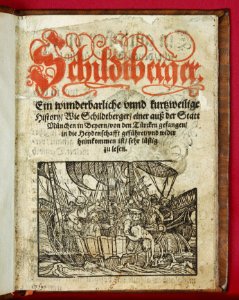 Schildtberger.
Ein wunderbarliche vnnd kurtzweilige
History/ Wie Schildtberger/ einer auß der Statt
München in Beyern/ von den Türcken gefangen/
in die Heydenschafft geführet/ vnd wider
heimkommen ist/ sehr lüstig
zu lesen.